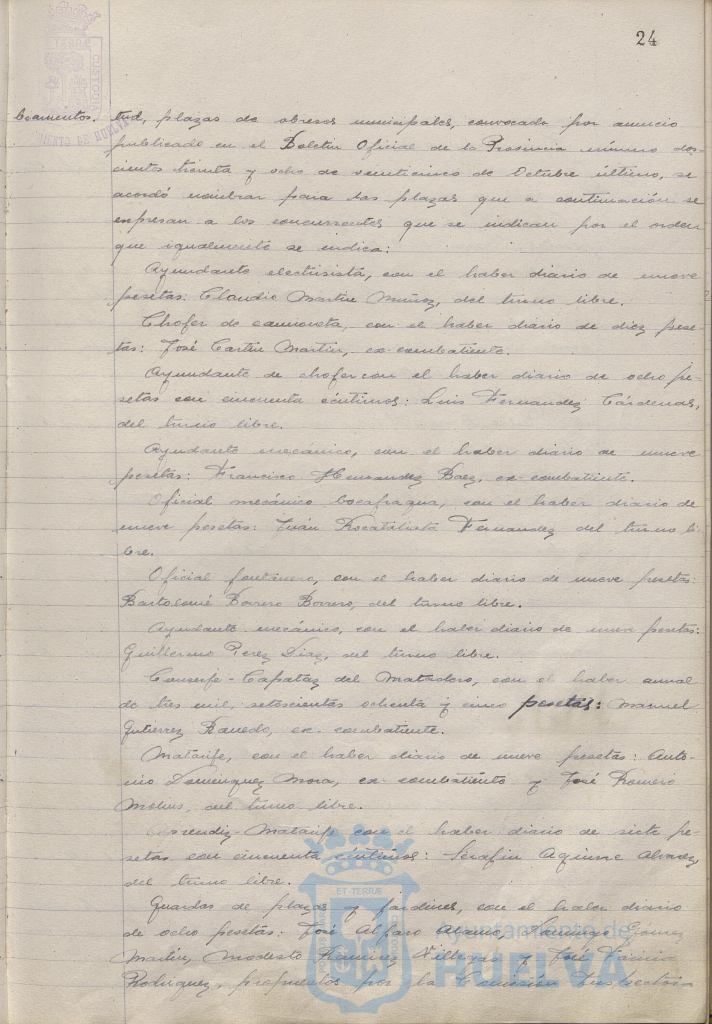 24
bramientos.
tud, plazas de obreros municipales, convocado por anuncio
publicado en el Boletin Oficial de la Provincia número dos-
cientos treinta y ocho de veinticinco de Octubre último, se
acordó nombrar para las plazas que a continuación se
expresan a los concursantes que se indican por el orden
que igualmente se indica:
Ayundante electrisista, con el haber diario de nueve
pesetas: Claudio Martin Muñoz, del turno libre.
Chofer de camioneta, con el haber diario de diez pese-
tas: José Martin, ex-combatiente.
Ayundante de chofer con el haber diario de ocho pe-
setas con cincuenta céntimos: Luis Fernandez Cárdenas,
del turno libre.
Ayundante mecánico, con el haber diario de nueve
pesetas: Francisco Hernandez Baez, ex-combatiente.
Oficial mecánico bocafragua, con el haber diario de
nueve pesetas: Juán Fernandez del turno li-
bre.
Oficial fontanero, con el haber diario de nueve pesetas:
Bartolomé Borrero Borrero, del turno libre.
Ayundante mecánico, con el haber diario de nueve pesetas:
Guillermo Perez Diaz, del turno libre.
Conserje-Capataz del Matadero, con el haber anual
de tres mil, setescientas ochenta y cinco pesetas: Manuel
Gutierrez, ex-combatiente.
Matarife, con el haber diario de nueve pesetas: Anto-
nio Dominguez Mora, ex-combatiente y José Romero
Molins, del turno libre.
Aprendiz-Matarife con el haber diario de siete pe-
setas con cincuenta céntimos: Serafin Aguirre Alvarez,
del turno libre.
Guardas de plazas y jardines, con el haber diario
de ocho pesetas: José Alfaro, Gomez
Martin, Modesto Ramirez Villegas y José Garcia
Rodriguez, propuestos por la Comisión Inspectora
ET TERRÆ
CUSTODIA
Ayuntamiento de
HUELVA